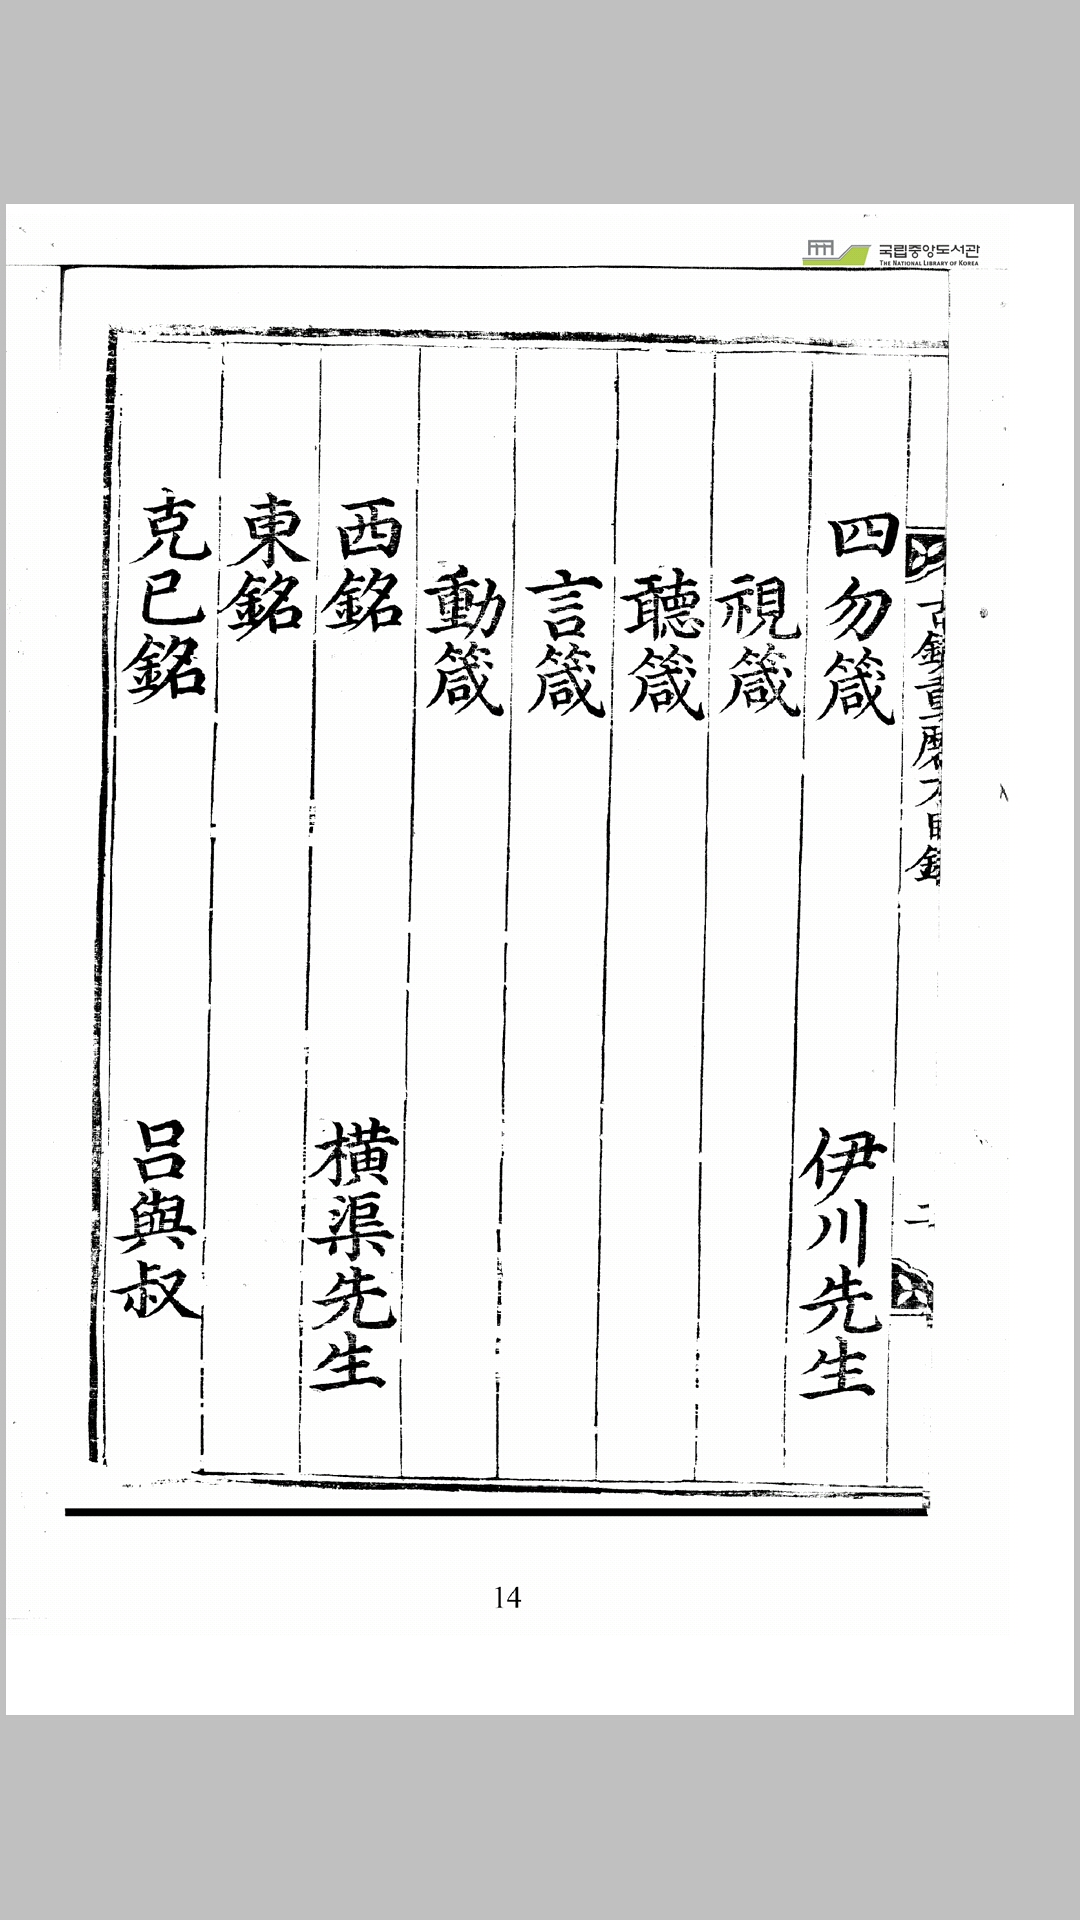 국립중앙도서관
THE NATIONAL LIBRARY OF KOREA
古鏡重磨方目錄
二
四勿箴 伊川先生
視箴
聽箴
言箴
動箴
西銘 橫渠先生
東銘
克已銘 呂與叔
14